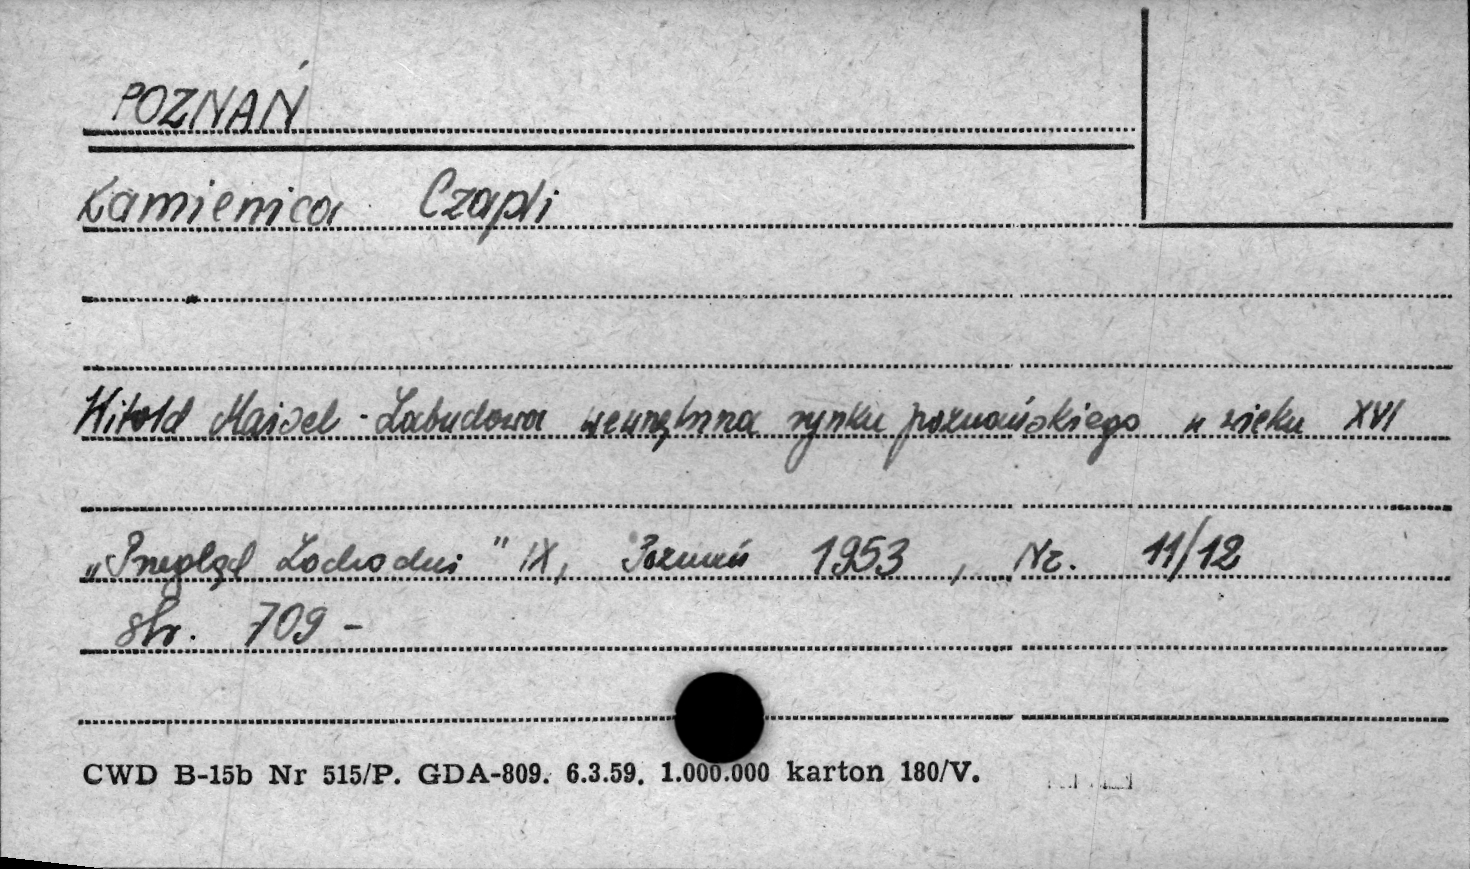 POZNAŃ
Kamienica Czapli
Witold Maisel - Zabudowa wewnętrzna rynku poznańskiego w wieku XVI
„Przegląd Zachodni" IX, Poznań 1953, Nr. 11/12
str. 709 -
CWD B-15b Nr 515/P. GDA-809. 6.3.59. 1.000.000 karton 180/V.